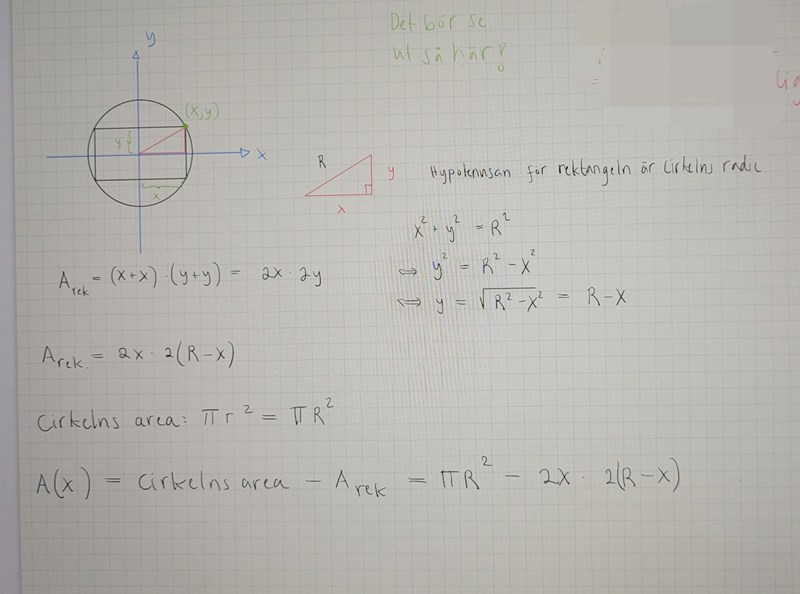 Det bör se
ut så här?
y
(x,y)
y
x
x
R
y
x
Hypotenusan för rektangeln är cirkelns radie
x² + y² = R²
⇔ y² = R² - x²
⇔ y = √(R² - x²) = R - x
A_rek = (x+x) · (y+y) = 2x · 2y
A_rek. = 2x · 2(R-x)
Cirkelns area: πr² = πR²
A(x) = cirkelns area - A_rek = πR² - 2x · 2(R-x)